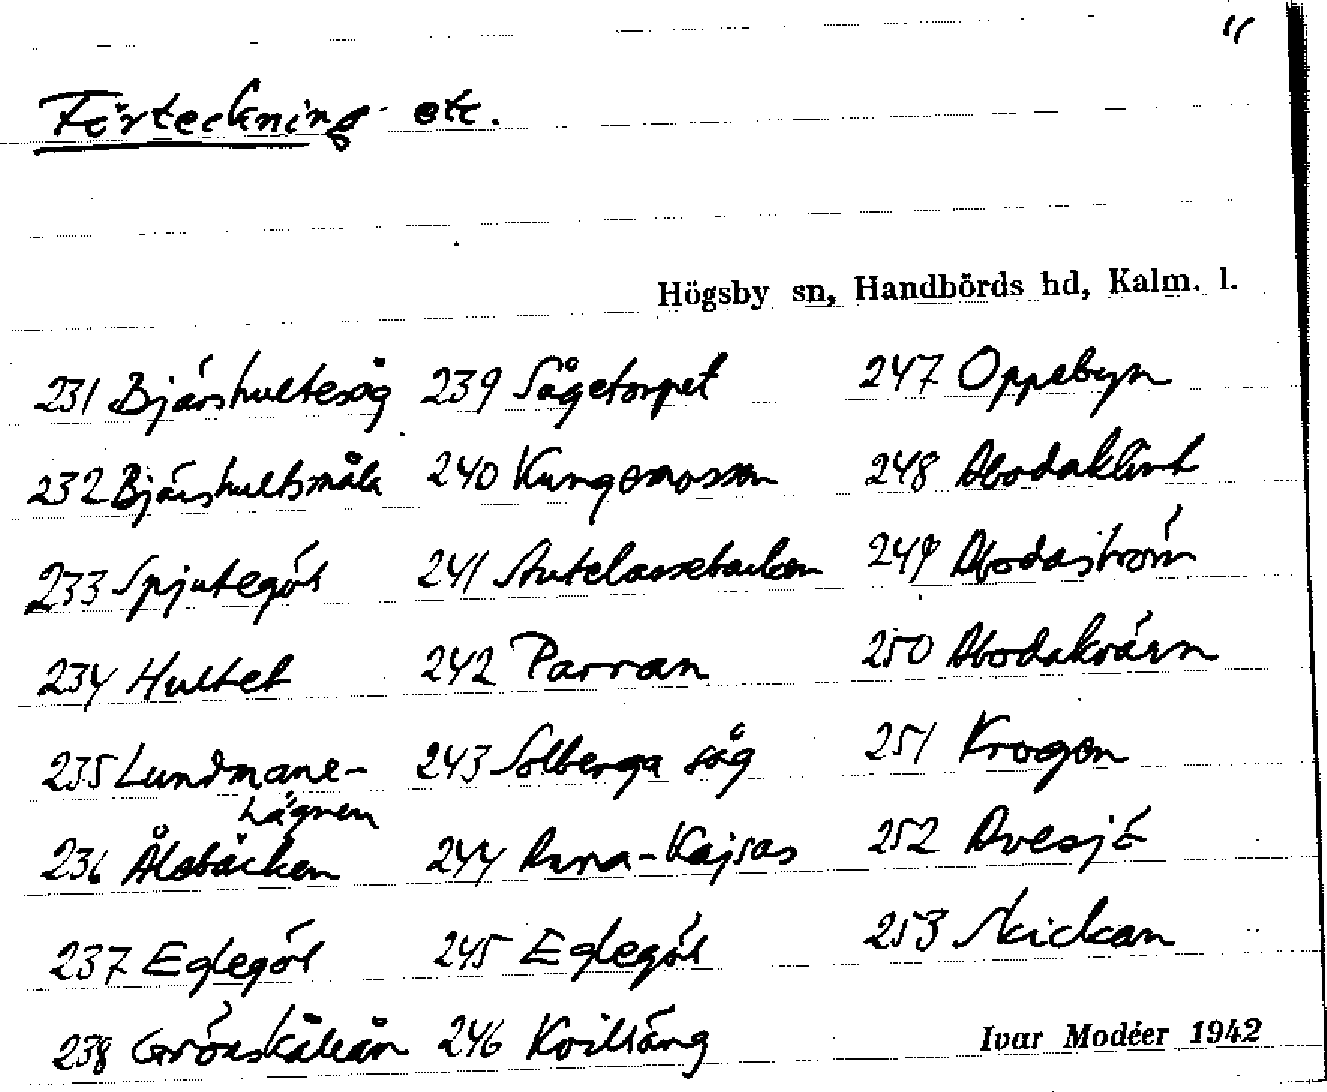 11
Förteckning etc.
Högsby sn, Handbörds hd, Kalm. l.
231 Bjärshultesåg 239 Sågetorpet 247 Oppebyn
232 Bjärshultsmåla 240 Kungsmossen 248 Abodaklint
233 Spjutegöl 241 249 Abodaström
234 Hultet 242 Parran 250 Abodakvärn
235 Lundmane- 243 Solberga såg 251 Krogen
hägnen
236 Ålebäcken 244 Anna-Kajsas 252 Avesjö
237 Eglegöl 245 Eglegöl 253 Skickan
238 246 Kvilläng
Ivar Modéer 1942